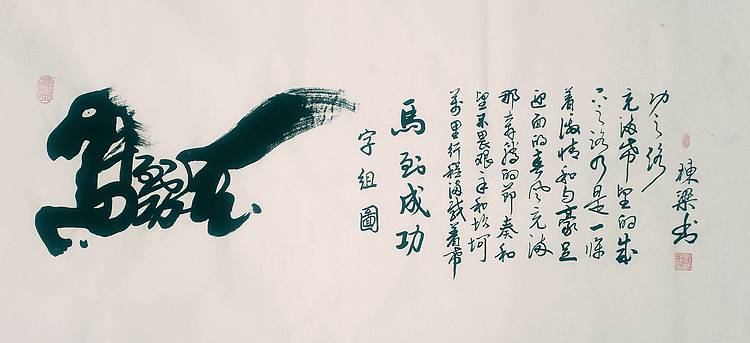 馬到成功
字組圖
萬里行程满载着希
望不畏艰辛和坎坷
那奔腾的节奏和
迎面的春风充满
着激情和与豪足
下之路乃是一條
充满希望的成
功之路
棟梁书